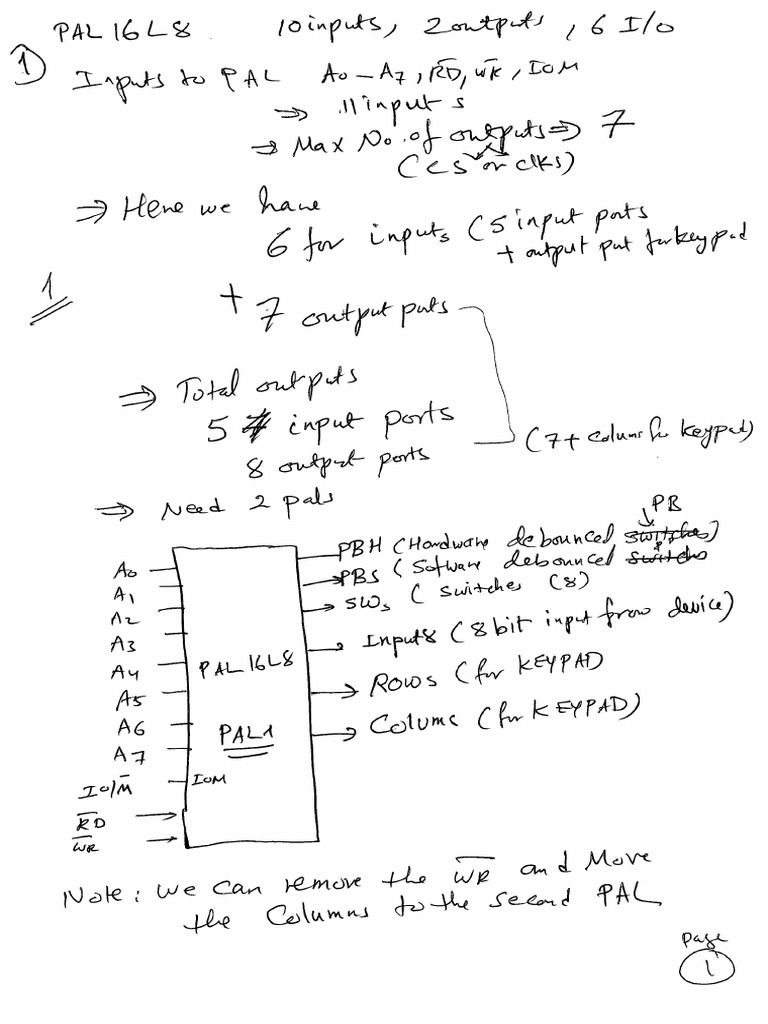 PAL16L8 10 inputs, 2 outputs, 6 I/O
1) Inputs to PAL A0-A7, R̅D̅, W̅R̅, IOM
⇒ 11 inputs
→ Max No. of outputs ⇒ 7
(CS or clks)
⇒ Here we have
6 for inputs (5 input ports
+ output port for keypad
1
+ 7 output ports
⇒ Total outputs
5 input ports
8 output ports
(7 + colums for keypad)
⇒ Need 2 pals
PB
PBH (Hardware debounced switches)
PBS (Software debounced switches
SWs (switches (8)
Input8 (8 bit input from device)
Rows (for KEYPAD
Colums (for KEYPAD)
A0
A1
A2
A3
A4
A5
A6
A7
IO/M̅
R̅D̅
W̅R̅
IOM
PAL16L8
PAL1
Note: we can remove the W̅R̅ and Move
the Columns to the second PAL
Page
1